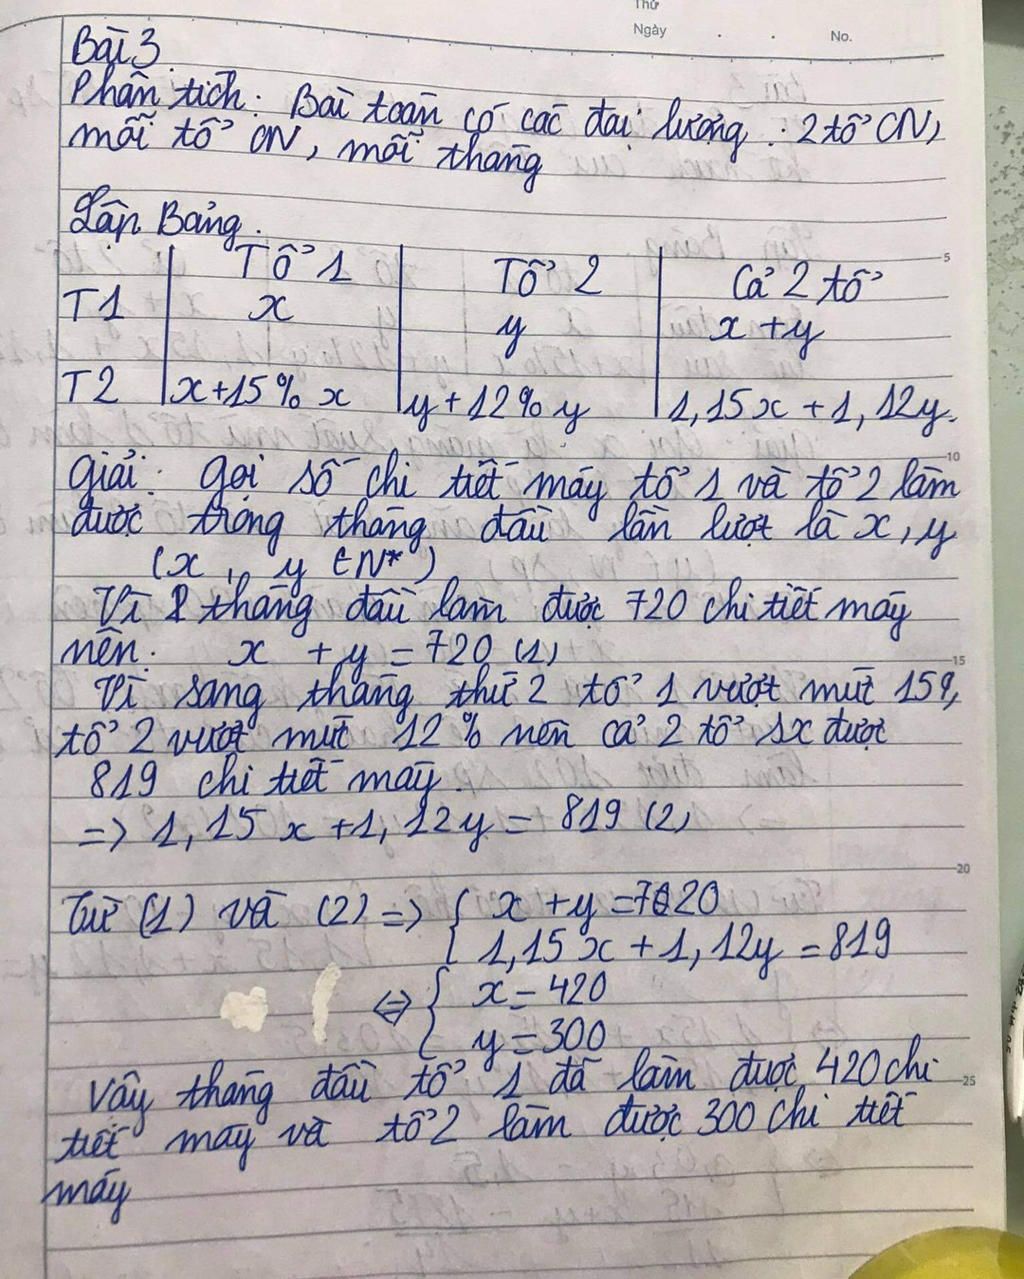 Thứ
Ngày . . No.
Bài 3.
Phân tích: Bài toán có các đại lượng: 2 tổ CN,
mỗi tổ CN, mỗi tháng
Lập Bảng.
Tổ 1 Tổ 2 Cả 2 tổ
T1 x y x + y
T2 x+15% x y + 12% y 1,15x + 1,12y.
Giải: Gọi số chi tiết máy tổ 1 và tổ 2 làm
được trong tháng đầu lần lượt là x, y
(x, y ∈ N*)
Vì tháng đầu làm được 720 chi tiết máy
nên: x + y = 720 (1)
Vì sang tháng thứ 2 tổ 1 vượt mức 15%,
tổ 2 vượt mức 12% nên cả 2 tổ sx được
819 chi tiết máy.
=> 1,15x + 1,12y = 819 (2)
Từ (1) và (2) => { x + y = 720
1,15x + 1,12y = 819
<=> { x = 420
y = 300
Vậy tháng đầu tổ 1 đã làm được 420 chi
tiết máy và tổ 2 làm được 300 chi tiết
máy
5
10
15
20
25